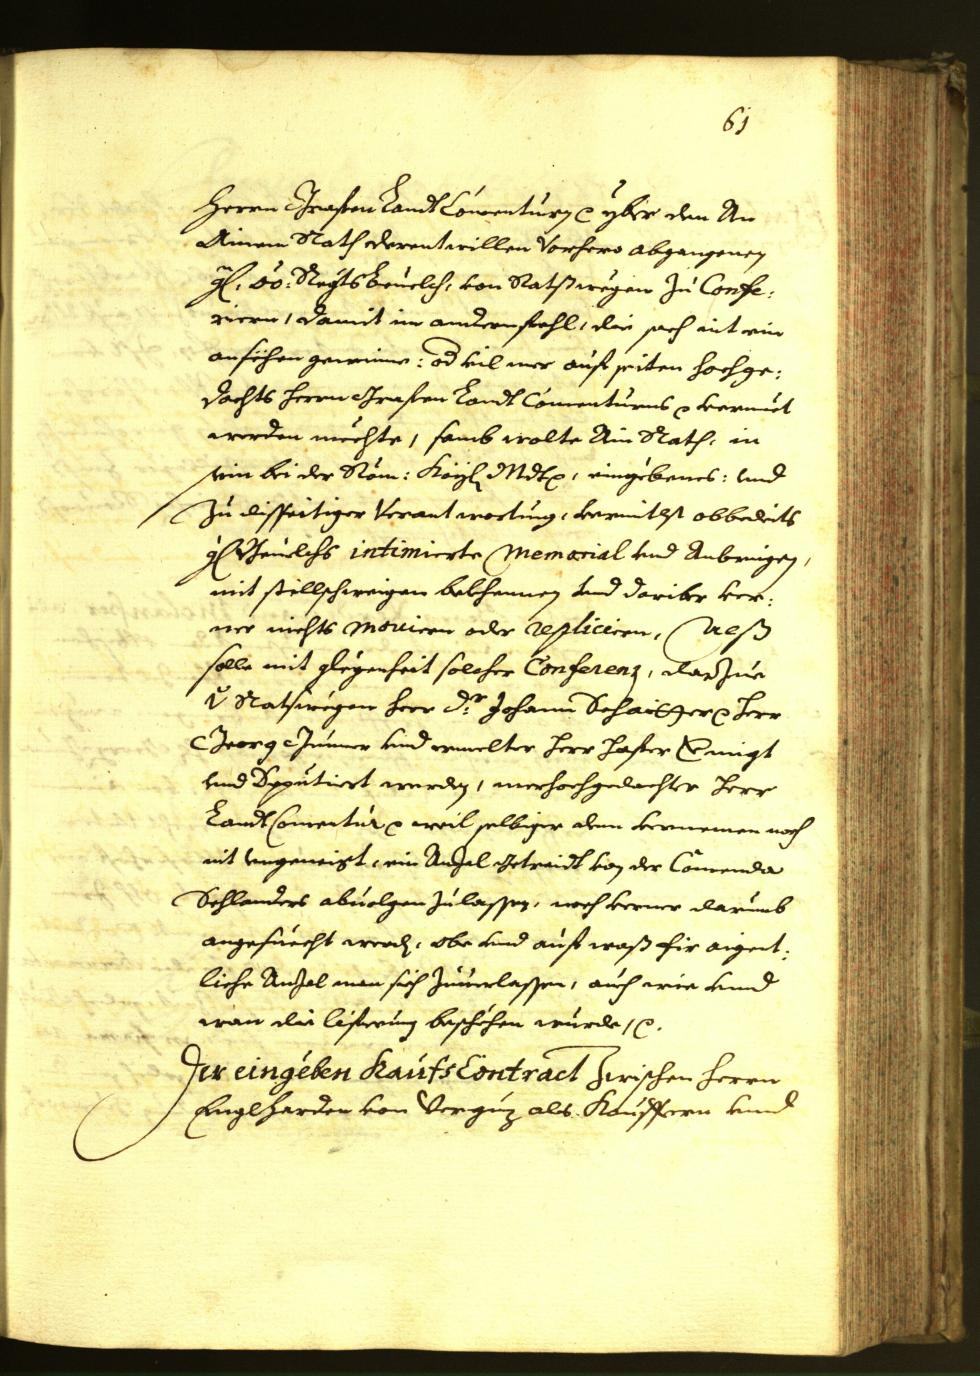 61
Herrn Grafen Landt Comenturn p yber den An
Ainem Rath derentwillen Vorhero abgangenen
gl: oö: Regts beuelch, von Ratswegen zu Confe:
riern, damit im andern fahl, die sach nit ein
ansechen gewinne: od vil mer auf seiten hochge:
dachts Herrn Grafen Landt Comenturns p vermuet
werden mechte, samb wolte Ain Rath, in
ein bei der Röm: Kayl: Mdt p, eingebenes: und
zu disseitiger Verantwortung, vermitlst obbedeits
gl beuelchs intimierte Memorial und Anbringen,
mit stillschweigen bekhennen und dariber ver:
ner nichts Mouiern oder repliciern,
solle mit glegenheit solcher Conferenz, darzue
v Ratswegen Herr Dr: Johann Herr
Georg und ermelter Herr
und Deputiert worden, merhochgedachter Herr
Landt Comentur p weil selbiger dem vernemen noch
nit ungeneigt, ein Anzal Getreidt von der Comenda
Schlanders abuolgen zulassen, noch verner darumb
angesuecht werdn, obe und auf waß fir aigent:
liche Anzal man sich zuuerlassen, auch wie und
wan die liferung beschechen wurde, p.
Der eingeben KaufsContract zwischen Herrn
Englharden von als Kauffern und